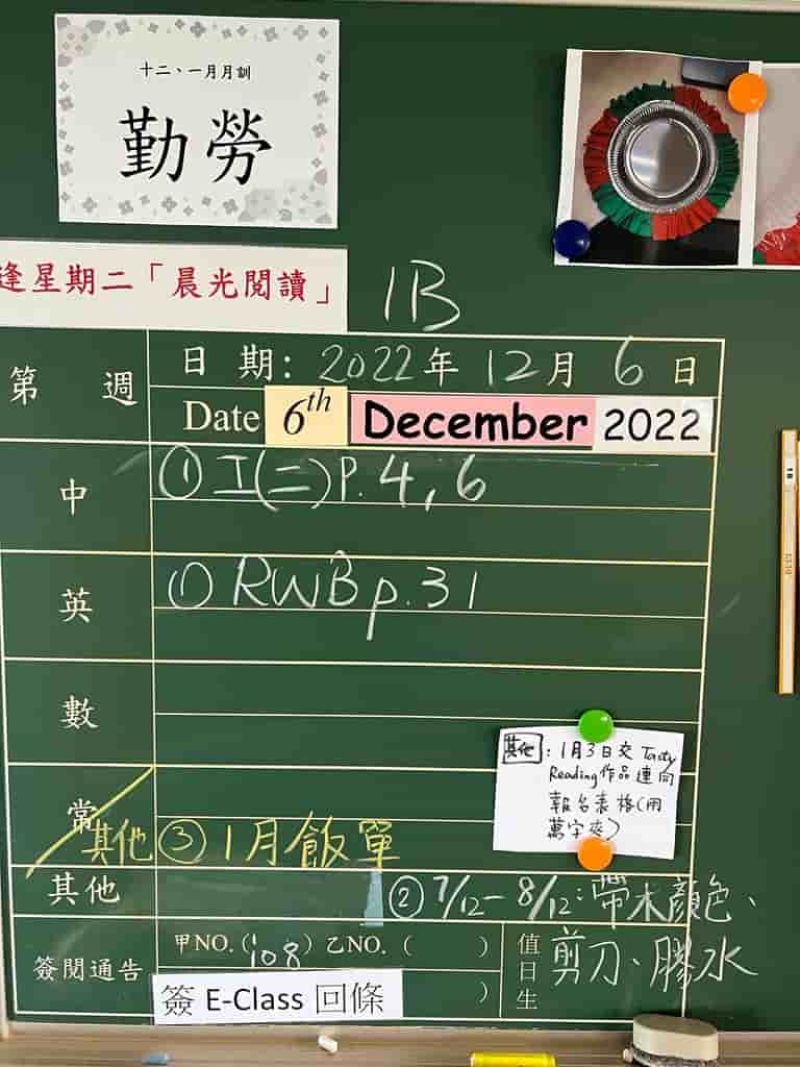 十二、一月月訓
勤勞
逢星期二「晨光閱讀」
1B
第 週
日 期: 2022年 12月 6日
Date 6th December 2022
中
①工(二)P.4,6
英
① RWB p.31
數
常
其他: 1月3日交 Tasty
Reading作品連同
報名表格(用
萬字夾)
其他 ③ 1月飯單
其他
② 7/12-8/12:帶木顏色、
剪刀、膠水
簽閱通告
甲NO.(108) 乙NO.( )
)
值日生
簽 E-Class 回條